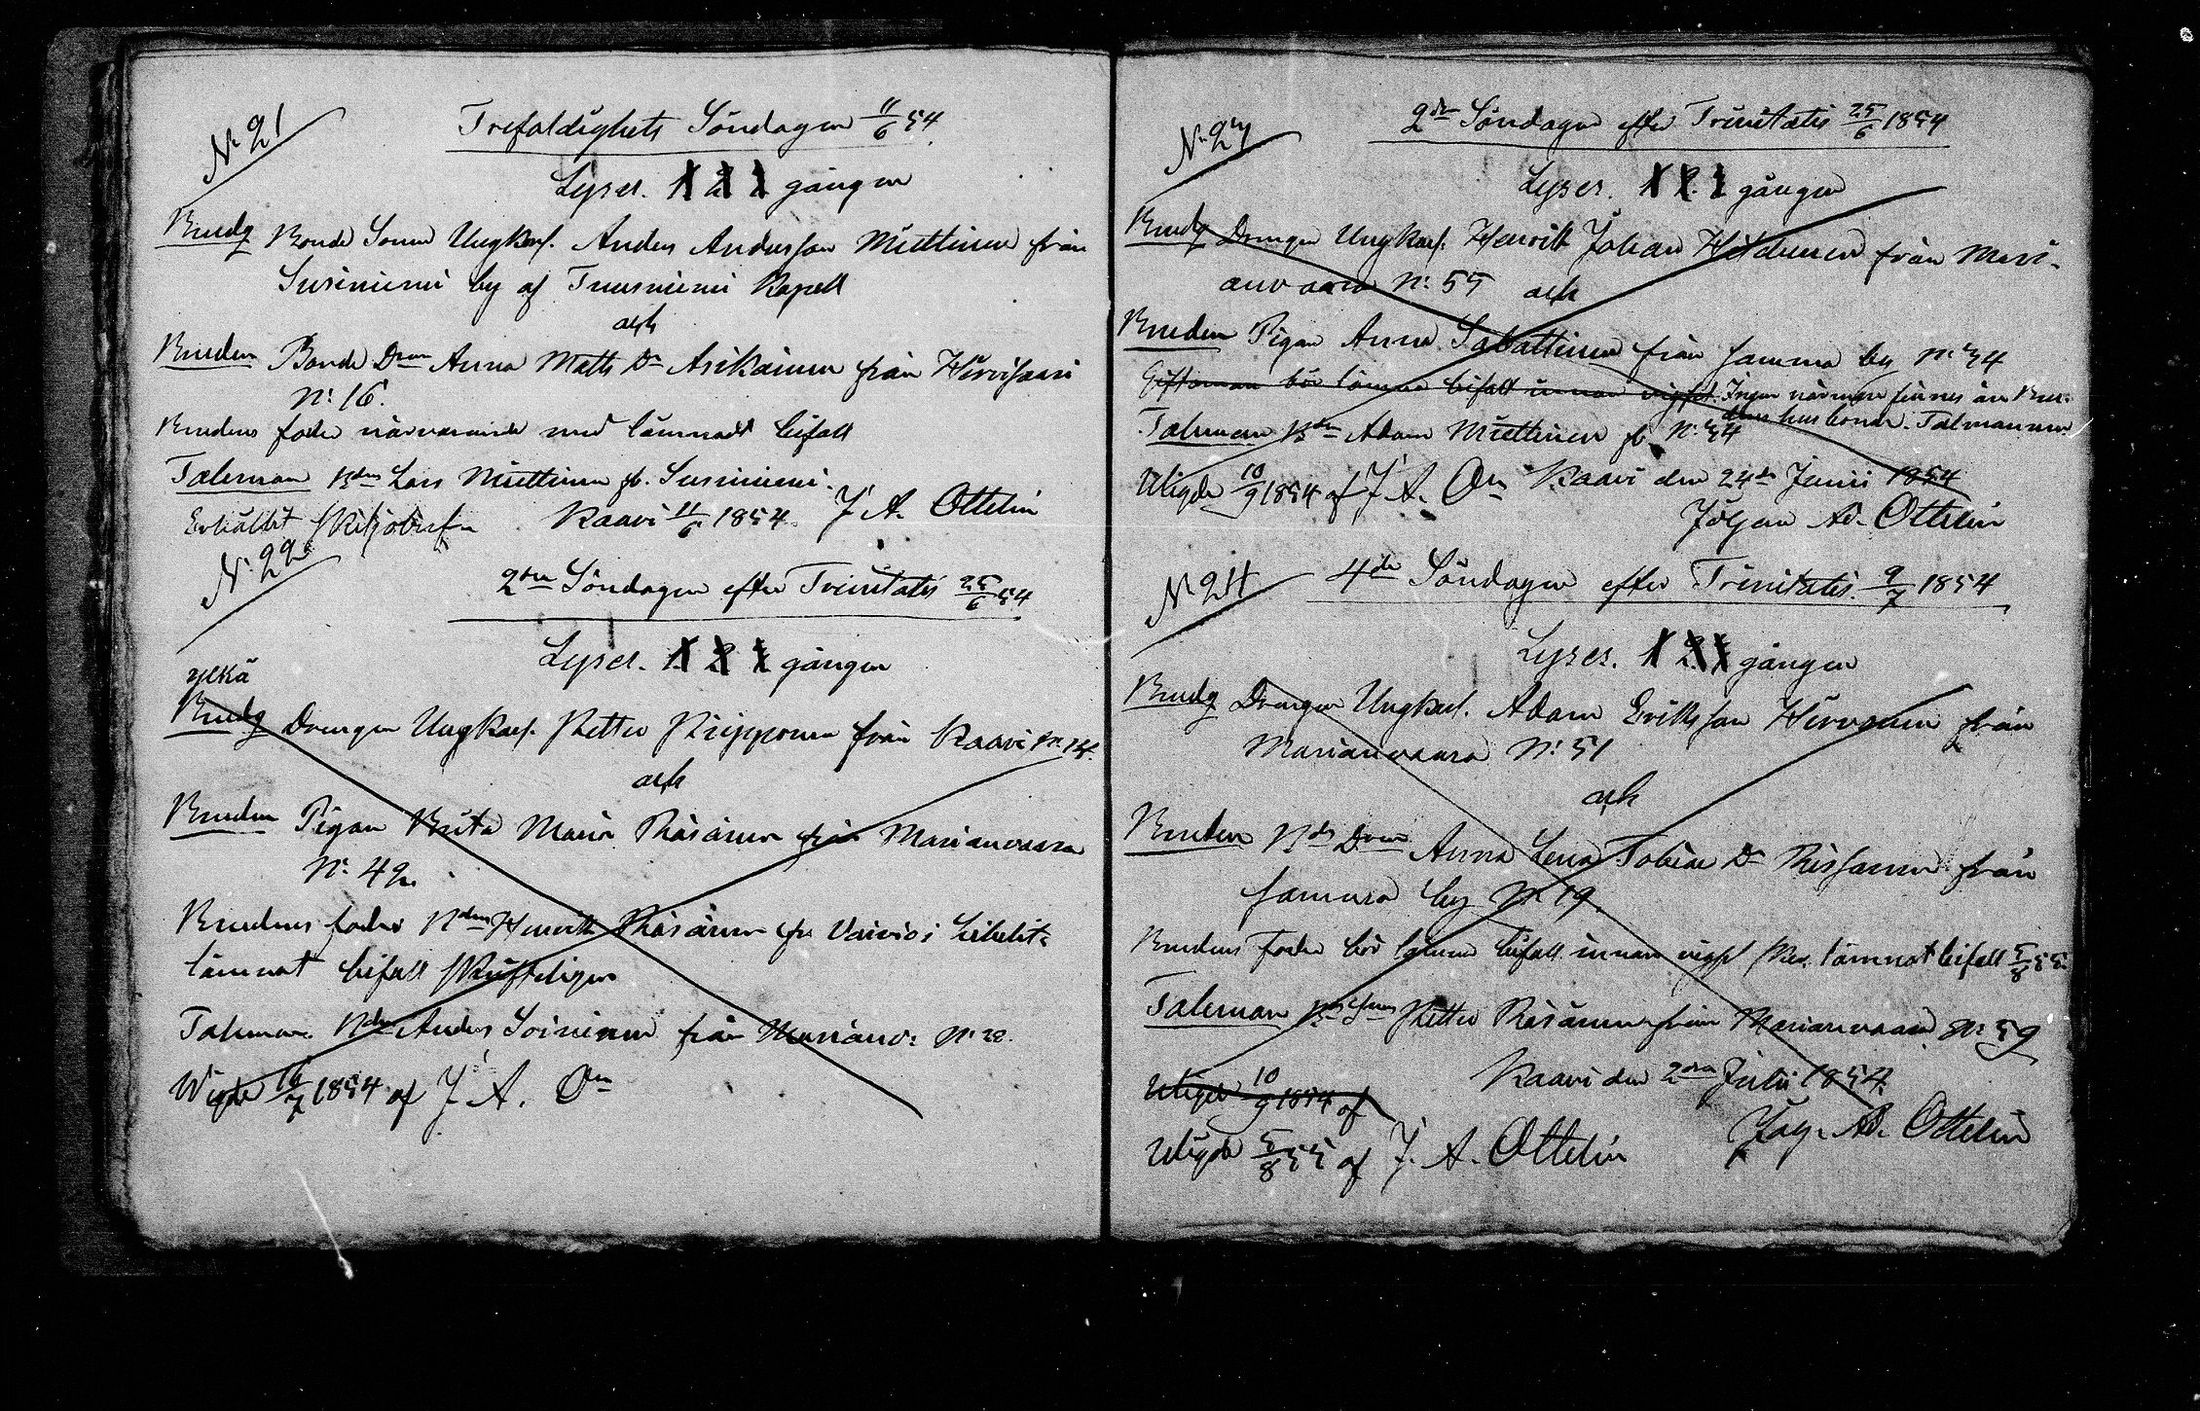 N: 21
Trefaldighets Söndagen 11/6 54.
Lyses. 1 2 3 gången
Brudg Bonde Sonen Ungkarl. Anders Andersson Miettinen från
Susiniemi by af Tuusniemi Kapell
och
Bruden Bonde Dren Anna Matts Dr Asikainen från Hirvisaari
N: 16.
Brudens fader närvarande med lämnadt bifall
Taleman Bden Lars Miettinen fr. Susiniemi.
Erhållit
Kaavi 11/6 1854. J. A. Ottelin
N: 22
2dra Söndagen efter Trinitatis 25/6 54
Lyses. 1 2 3 gången
Brudg Drengen Ungkarl. Petter Piipponen från Kaavi N: 14.
och
Bruden Pigan Brita Maria Räsänen från Marianvaara
N: 42.
Brudens fader Bden Henrik Räsänen fr. Libelits
lämnat bifall skrifteligen
Taleman. Bden Anders Soininen från Marianv: N: 28.
Wigde 16/7 1854 af J. A. On
N: 23
2dra Söndagen efter Trinitatis 25/6 1854
Lyses. 1 2 3 gången
Brudg Drengen Ungkarl. Henrik Johan från Mari-
anvaara N: 55 och
Bruden Pigan Anna Sabattinen från samma by N: 54
Giftoman bör lämna bifall innan vigsel. Ingen närmare finnes än Bru-
dens husbonde. Talmannen
Taleman Bden Adam Miettinen fr. N: 54
Wigde 10/9 1854 af J. A. On Kaavi den 24de Junii 1854
Johan Ad. Ottelin
N: 24
4de Söndagen efter Trinitatis. 9/7 1854
Lyses. 1 2 3 gången
Brudg Drengen Ungkarl. Adam Eriksson Hirvonen från
Marianvaara N: 51
och
Bruden Bds Dren Anna Lena Tobias Dr Rissanen från
samma by N: 19.
Brudens Fader bör lämna bifall innan vigsel lämnat bifall 5/8 55.
Taleman Bde Sonen Petter Räsänen från Marianvaara N: 59
Kaavi den 2dra Julii 1854.
Wigde 10/9 1854 af
Joh. Ad. Ottelin
Wigde 5/8 55 af J. A. Ottelin